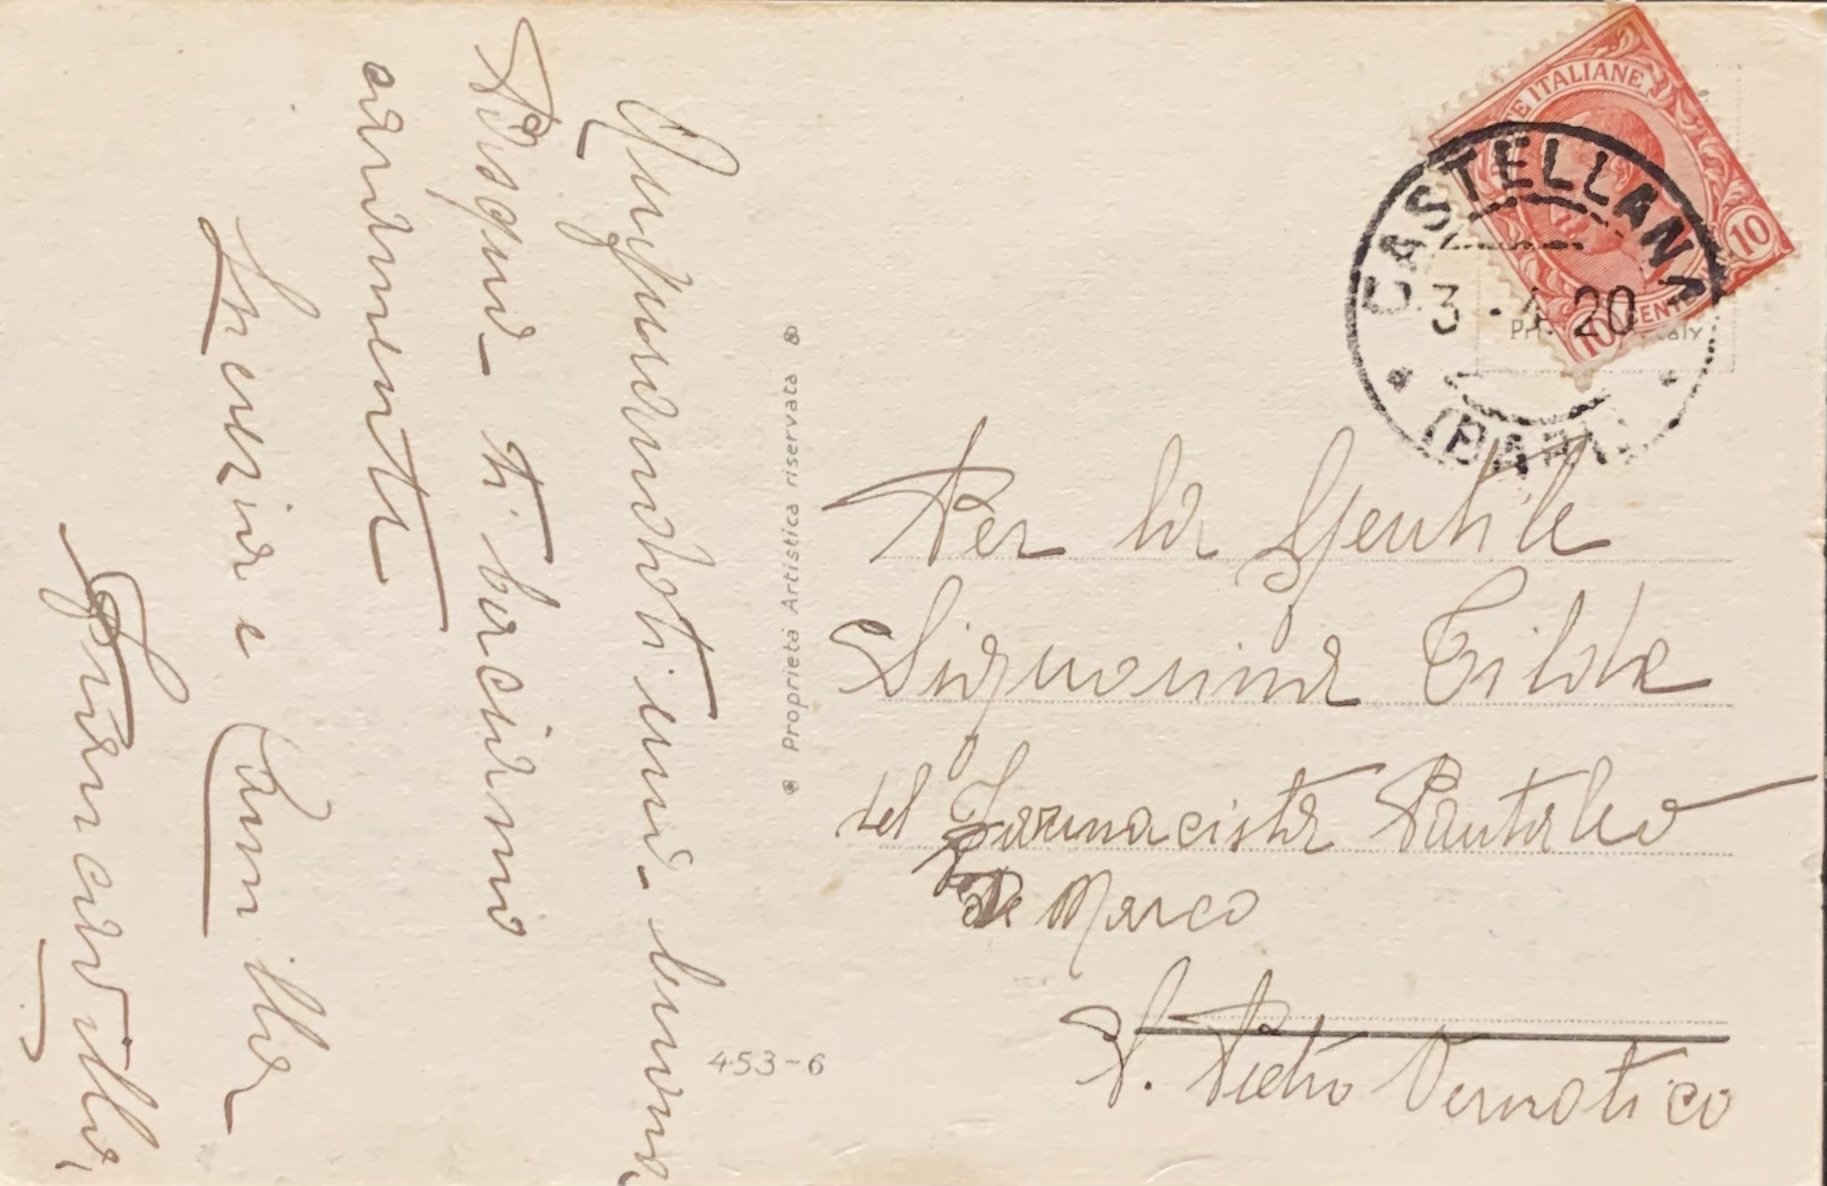 Augurandoti una buona
Pasqua ti baciamo
caramente
Lucrezia e Camilla
Francavilla
Proprietà Artistica riservata
453-6
E ITALIANE
10
10 CENT
CASTELLANA
3 - 4 20
(BARI)
Per la Gentile
Signorina Tilde
del Farmacista Pantaleo
De Marco
S. Pietro Vernotico